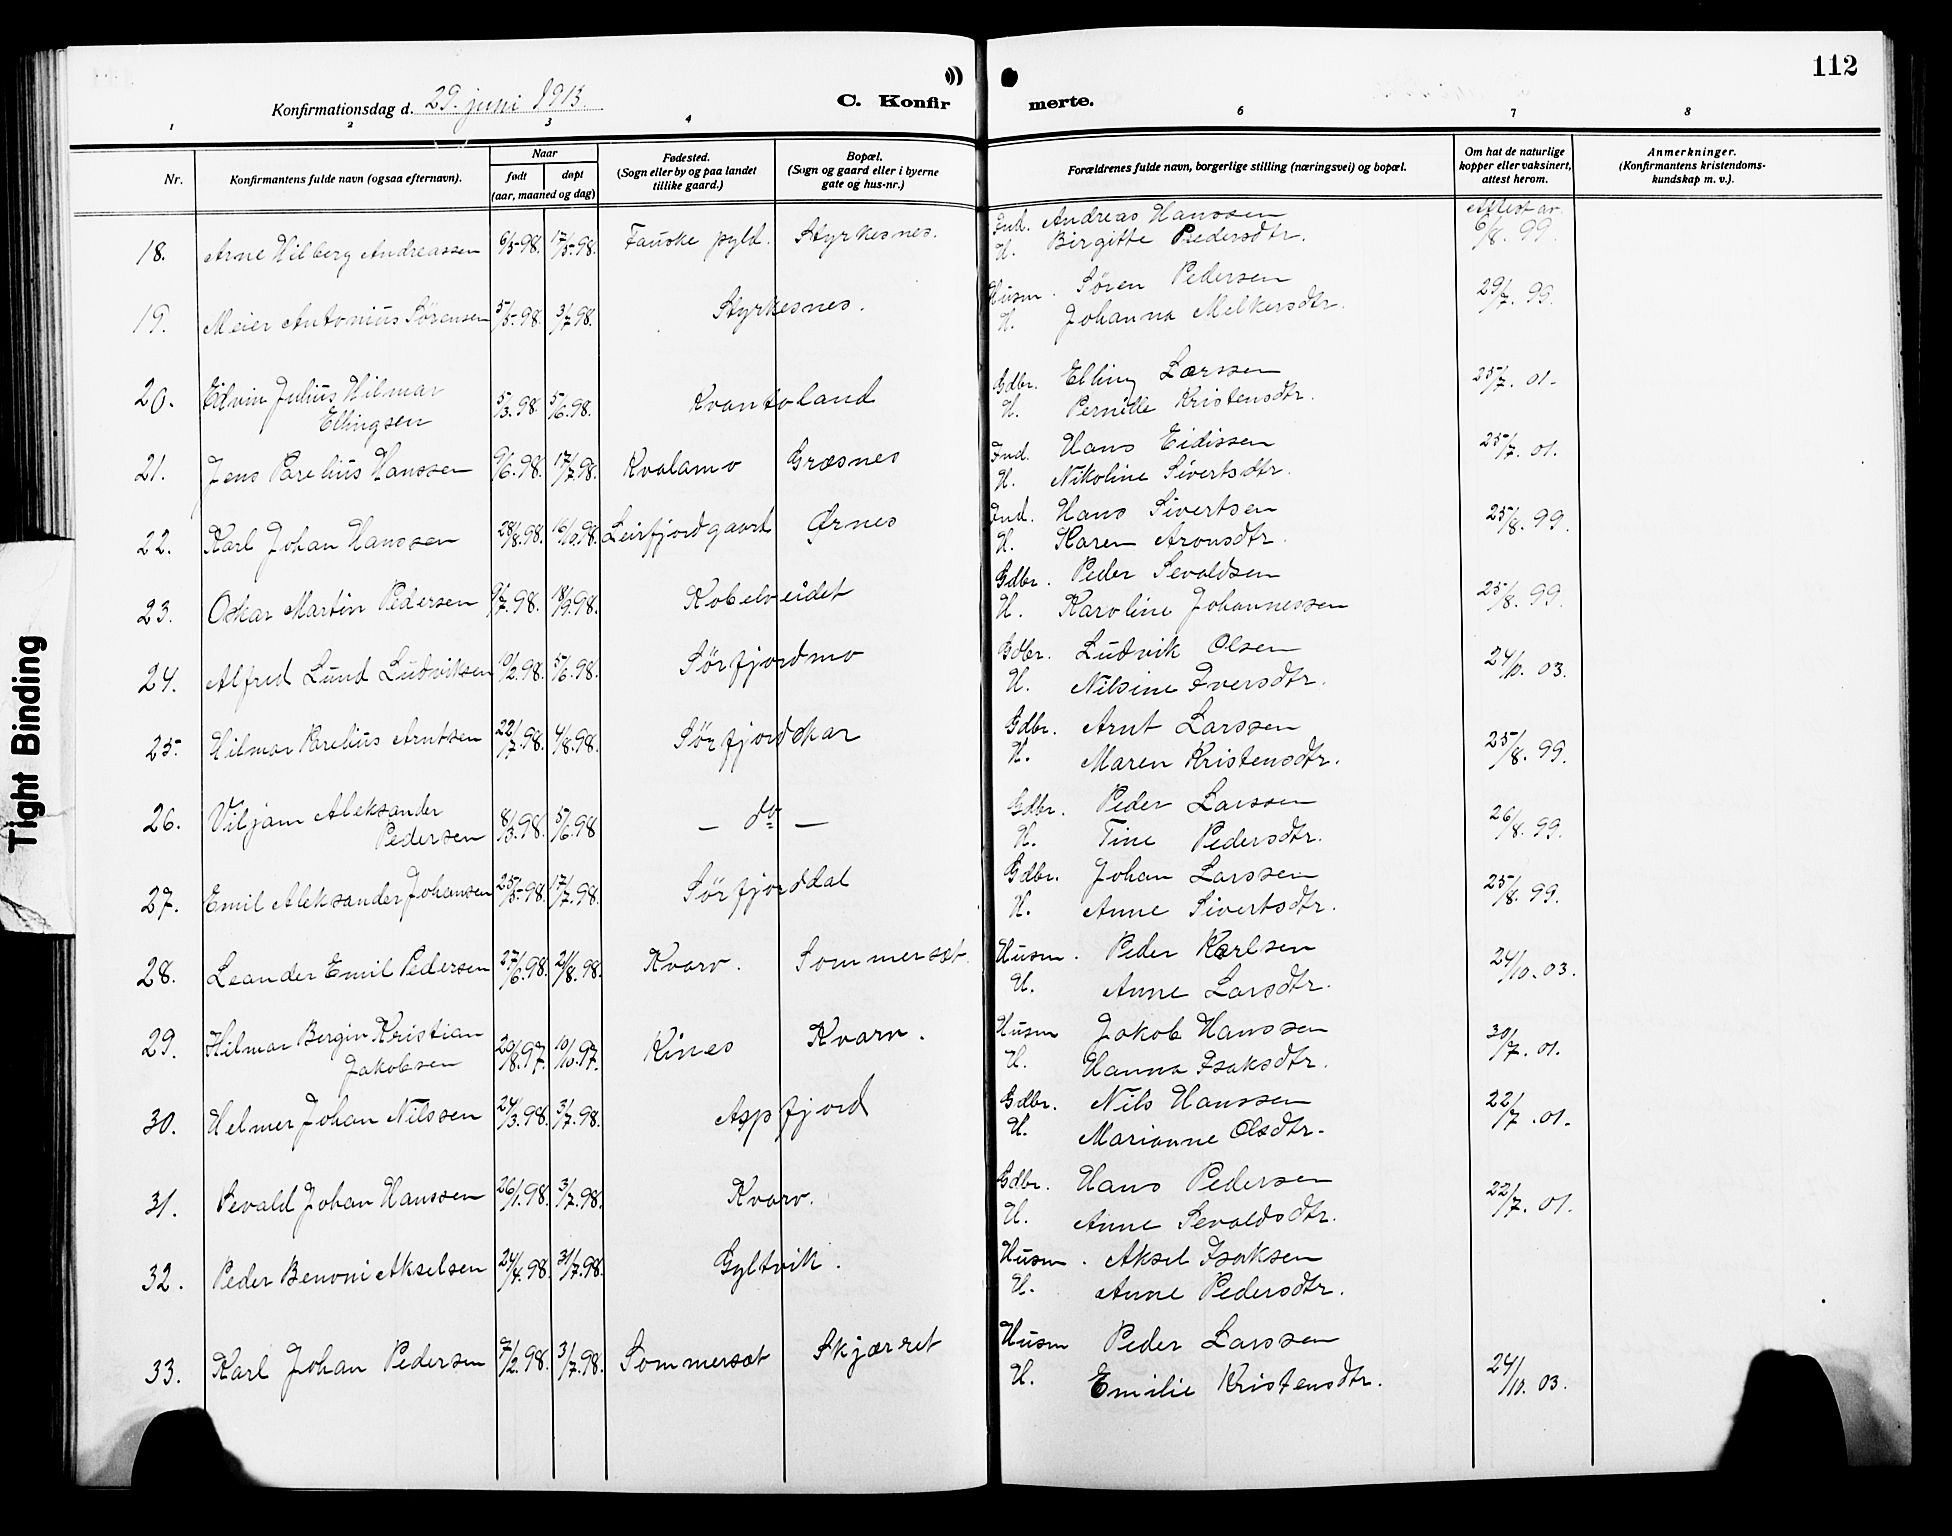 112
Konfirmationsdag d. 29. juni 1913.
C. Konfirmerte.
1 2 3 4 6 7 8
Nr.
Konfirmantens fulde navn (ogsaa efternavn).
Naar
født døpt
(aar, maaned og dag)
Fødested.
(Sogn eller by og paa landet
tillike gaard.)
Bopæl.
(Sogn og gaard eller i byerne
gate og hus-nr.)
Forældrenes fulde navn, borgerlige stilling (næringsvei) og bopæl.
Om hat de naturlige
kopper eller vaksinert,
attest herom.
Anmerkninger.
(Konfirmantens kristendoms-
kundskap m. v.).
18. Arne Hilberg Andreassen 6/5-98. 17/5-98. Fauske pgld. Styrkesnes. Ind. Andreas Hanssen Attest av
H. Birgitte Pedersdtr. 6/8. 99.
19. Meier Antonius Sørensen 5/5-98. 3/7.98. Styrkesnes. Husm. Søren Pedersen 29/7. 99.
H. Johanna Melkersdtr.
20. Edvin Julius Hilmar 5/3.98. 5/6.98. Kvantoland Gdbr. Elling Larssen 25/7. 01.
Ellingsen H. Pernille Kristensdtr.
21. Jens Parelius Hanssen 9/6.98. 17/7.98. Kvalamo Græsnes Ind. Hans Eidissen 25/7. 01.
H. Nikoline Sivertsdtr.
22. Karl Johan Hanssen 28/8.98. 16/10.98. Leirfjordgaard Ørnes Ind. Hans Sivertsen 25/8. 99.
H. Karen Aronsdtr.
23. Oskar Martin Pedersen 9/7.98. 18/9.98. Kobelveidet Gdbr. Peder Sevaldsen 25/8. 99.
H. Karoline Johannessen
24. Alfred Lund Ludviksen 9/2.98. 5/6.98. Sørfjordmo Gdbr. Ludvik Olsen 24/10. 03.
H. Nilsine Iversdtr.
25. Hilmar Parelius Arntsen 22/7.98. 4/8.98. Sørfjordskar Gdbr. Arnt Larssen 25/8. 99.
H. Maren Kristensdtr.
26. Viljam Aleksander 8/3.98. 5/6.98 — do — Gdbr. Peder Larssen 26/8. 99.
Pedersen H. Tine Pedersdtr.
27. Emil Aleksander Johansen 25/5-98. 17/7.98. Sørfjorddal Gdbr. Johan Larssen 25/8. 99.
H. Anne Sivertsdtr.
28. Leander Emil Pedersen 27/6.98. 21/8.98. Kvarv. Sommersæt. Husm. Peder Karlsen 24/10. 03.
H. Anne Larsdtr.
29. Hilmar Bergin Kristian 20/8.97. 10/10.97. Kines Kvarv. Husm Jakob Hanssen 30/7. 01.
Jakobsen H. Hanna Isaksdtr.
30. Helmer Johan Nilssen 24/3.98. 3/7.98. Aspfjord Gdbr. Nils Hanssen 22/7. 01.
H. Marianne Olsdtr.
31. Sevald Johan Hanssen 26/1.98. 3/7.98. Kvarv. Gdbr. Hans Pedersen 22/7. 01.
H. Anne Sevaldsdtr.
32. Peder Benoni Akselsen 24/4.98. 31/7.98. Gyltvik. Husm. Aksel Isaksen
H. Anne Pedersdtr.
33. Karl Johan Pedersen 7/2.98. 3/7.98. Sommersæt Skjærret Husm Peder Larssen 24/10. 03.
H. Emilie Kristensdtr.
Tight Binding